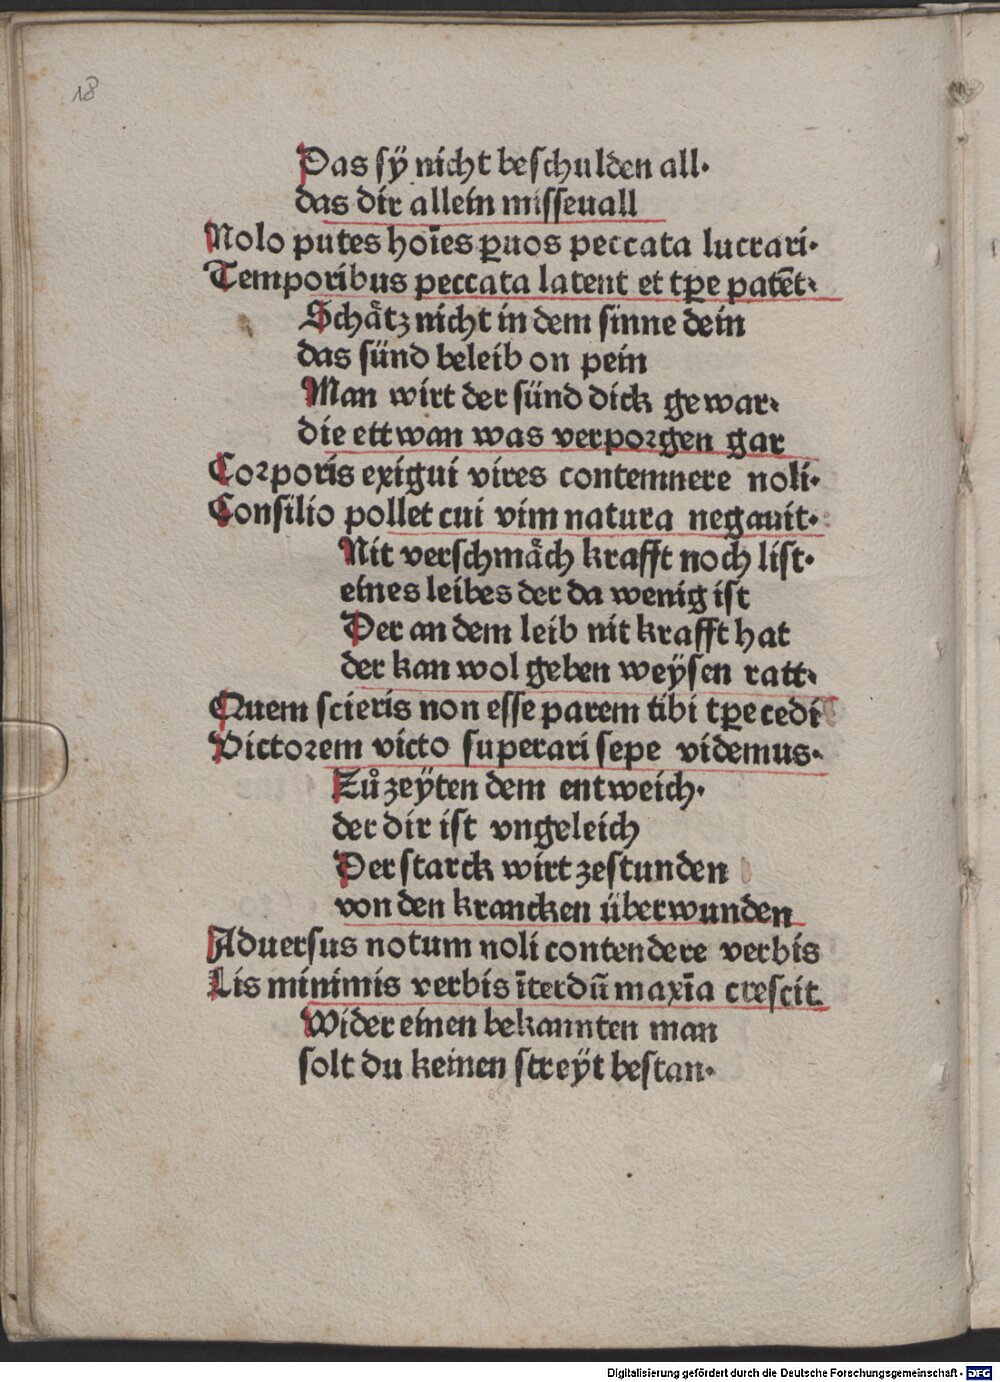 18
Das sÿ nicht beschulden all·
das dir allein misseuall
Nolo putes hoīes ꝓuos peccata lucrari·
Temporibus peccata latent et tꝑe patēt·
Schätz nicht in dem sinne dein
das sünd beleib on pein
Man wirt der sünd dick gewar·
die ettwan was verporgen gar
Corporis exigui vires contemnere noli·
Consilio pollet cui vim natura negauit·
Nit verschmäch krafft noch list·
eines leibes der da wenig ist
Der an dem leib nit krafft hat
der kan wol geben weÿsen ratt·
Quem scieris non esse parem tibi tꝑe cedi
Victorem victo superari sepe videmus·
Zů zeÿten dem entweich·
der dir ist vngeleich
Der starck wirt zestunden
von den krancken überwunden
Aduersus notum noli contendere verbis
Lis minimis verbis īterdū maxīa crescit.
Wider einen bekannten man
solt du keinen streÿt bestan·
Digitalisierung gefördert durch die Deutsche Forschungsgemeinschaft - DFG